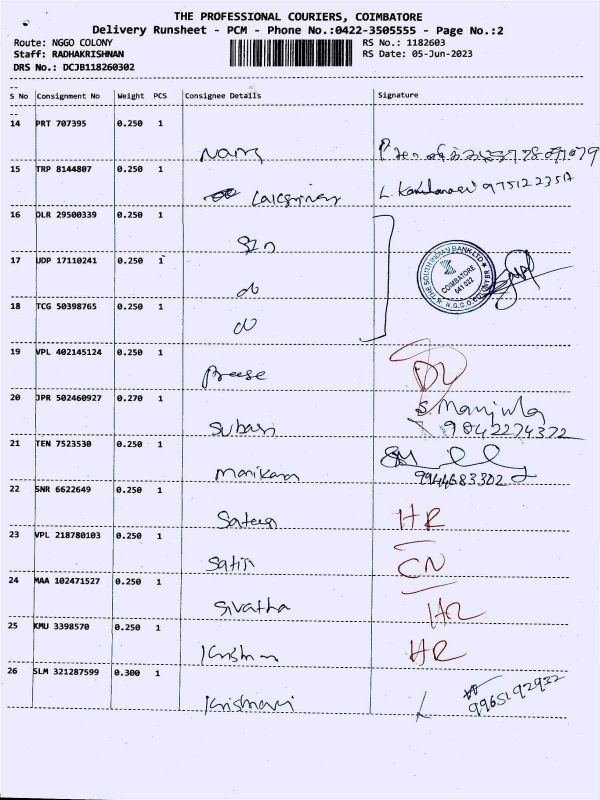 THE PROFESSIONAL COURIERS, COIMBATORE
Delivery Runsheet - PCM - Phone No.:0422-3505555 - Page No.:2
Route: NGGO COLONY
RS No.: 1182603
Staff: RADHAKRISHNAN
RS Date: 05-Jun-2023
DRS No.: DCJB118260302
S No Consignment No Weight PCS Consignee Details Signature
14 PRT 707395 0.250 1
15 TRP 8144807 0.250 1
16 DLR 29500339 0.250 1
SIn
THE SOUTH INDIAN BANK LTD
COIMBATORE
641 022
N.G.G.O. COLONY BR
17 UDP 17110241 0.250 1
do
18 TCG 50398765 0.250 1
do
19 VPL 402145124 0.250 1
Preese
20 JPR 502460927 0.270 1
Subash S. Manjula
9842274372
21 TEN 7523530 0.250 1
Manikam 9944683302
22 SNR 6622649 0.250 1
Sateesh HR
23 VPL 218780103 0.250 1
Satis CN
24 MAA 102471527 0.250 1
Sivatha HR
25 KMU 3398570 0.250 1
Krishna HR
26 SLM 321287599 0.300 1
Krishnavi 9965192932